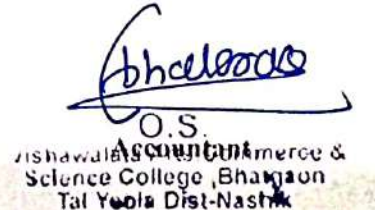 O.S.
Accountant
Commerce &
Science College, Bhatgaon
Tal Yeola Dist-Nashik